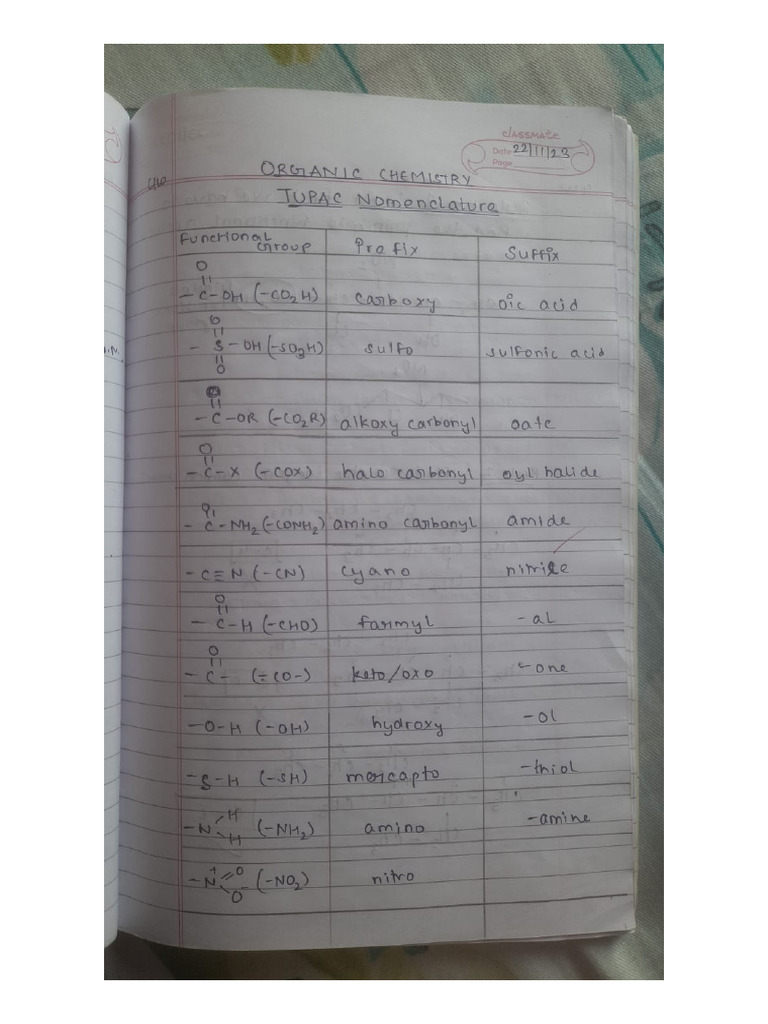 classmate
Date 22/11/23
Page
CW
ORGANIC CHEMISTRY
IUPAC Nomenclature
Functional Group Prefix Suffix
O
||
-C-OH (-CO₂H) carboxy oic acid
O
||
-S-OH (-SO₃H) sulfo sulfonic acid
||
O
O
||
-C-OR (-CO₂R) alkoxy carbonyl oate
O
||
-C-X (-COX) halo carbonyl oyl halide
O
||
-C-NH₂ (-CONH₂) amino carbonyl amide
-C≡N (-CN) cyano nitrile
O
||
-C-H (-CHO) formyl -al
O
||
-C- (-CO-) keto/oxo -one
-O-H (-OH) hydroxy -ol
-S-H (-SH) mercapto -thiol
H
-N (-NH₂) amino -amine
H
+ O
-N (-NO₂) nitro
O-